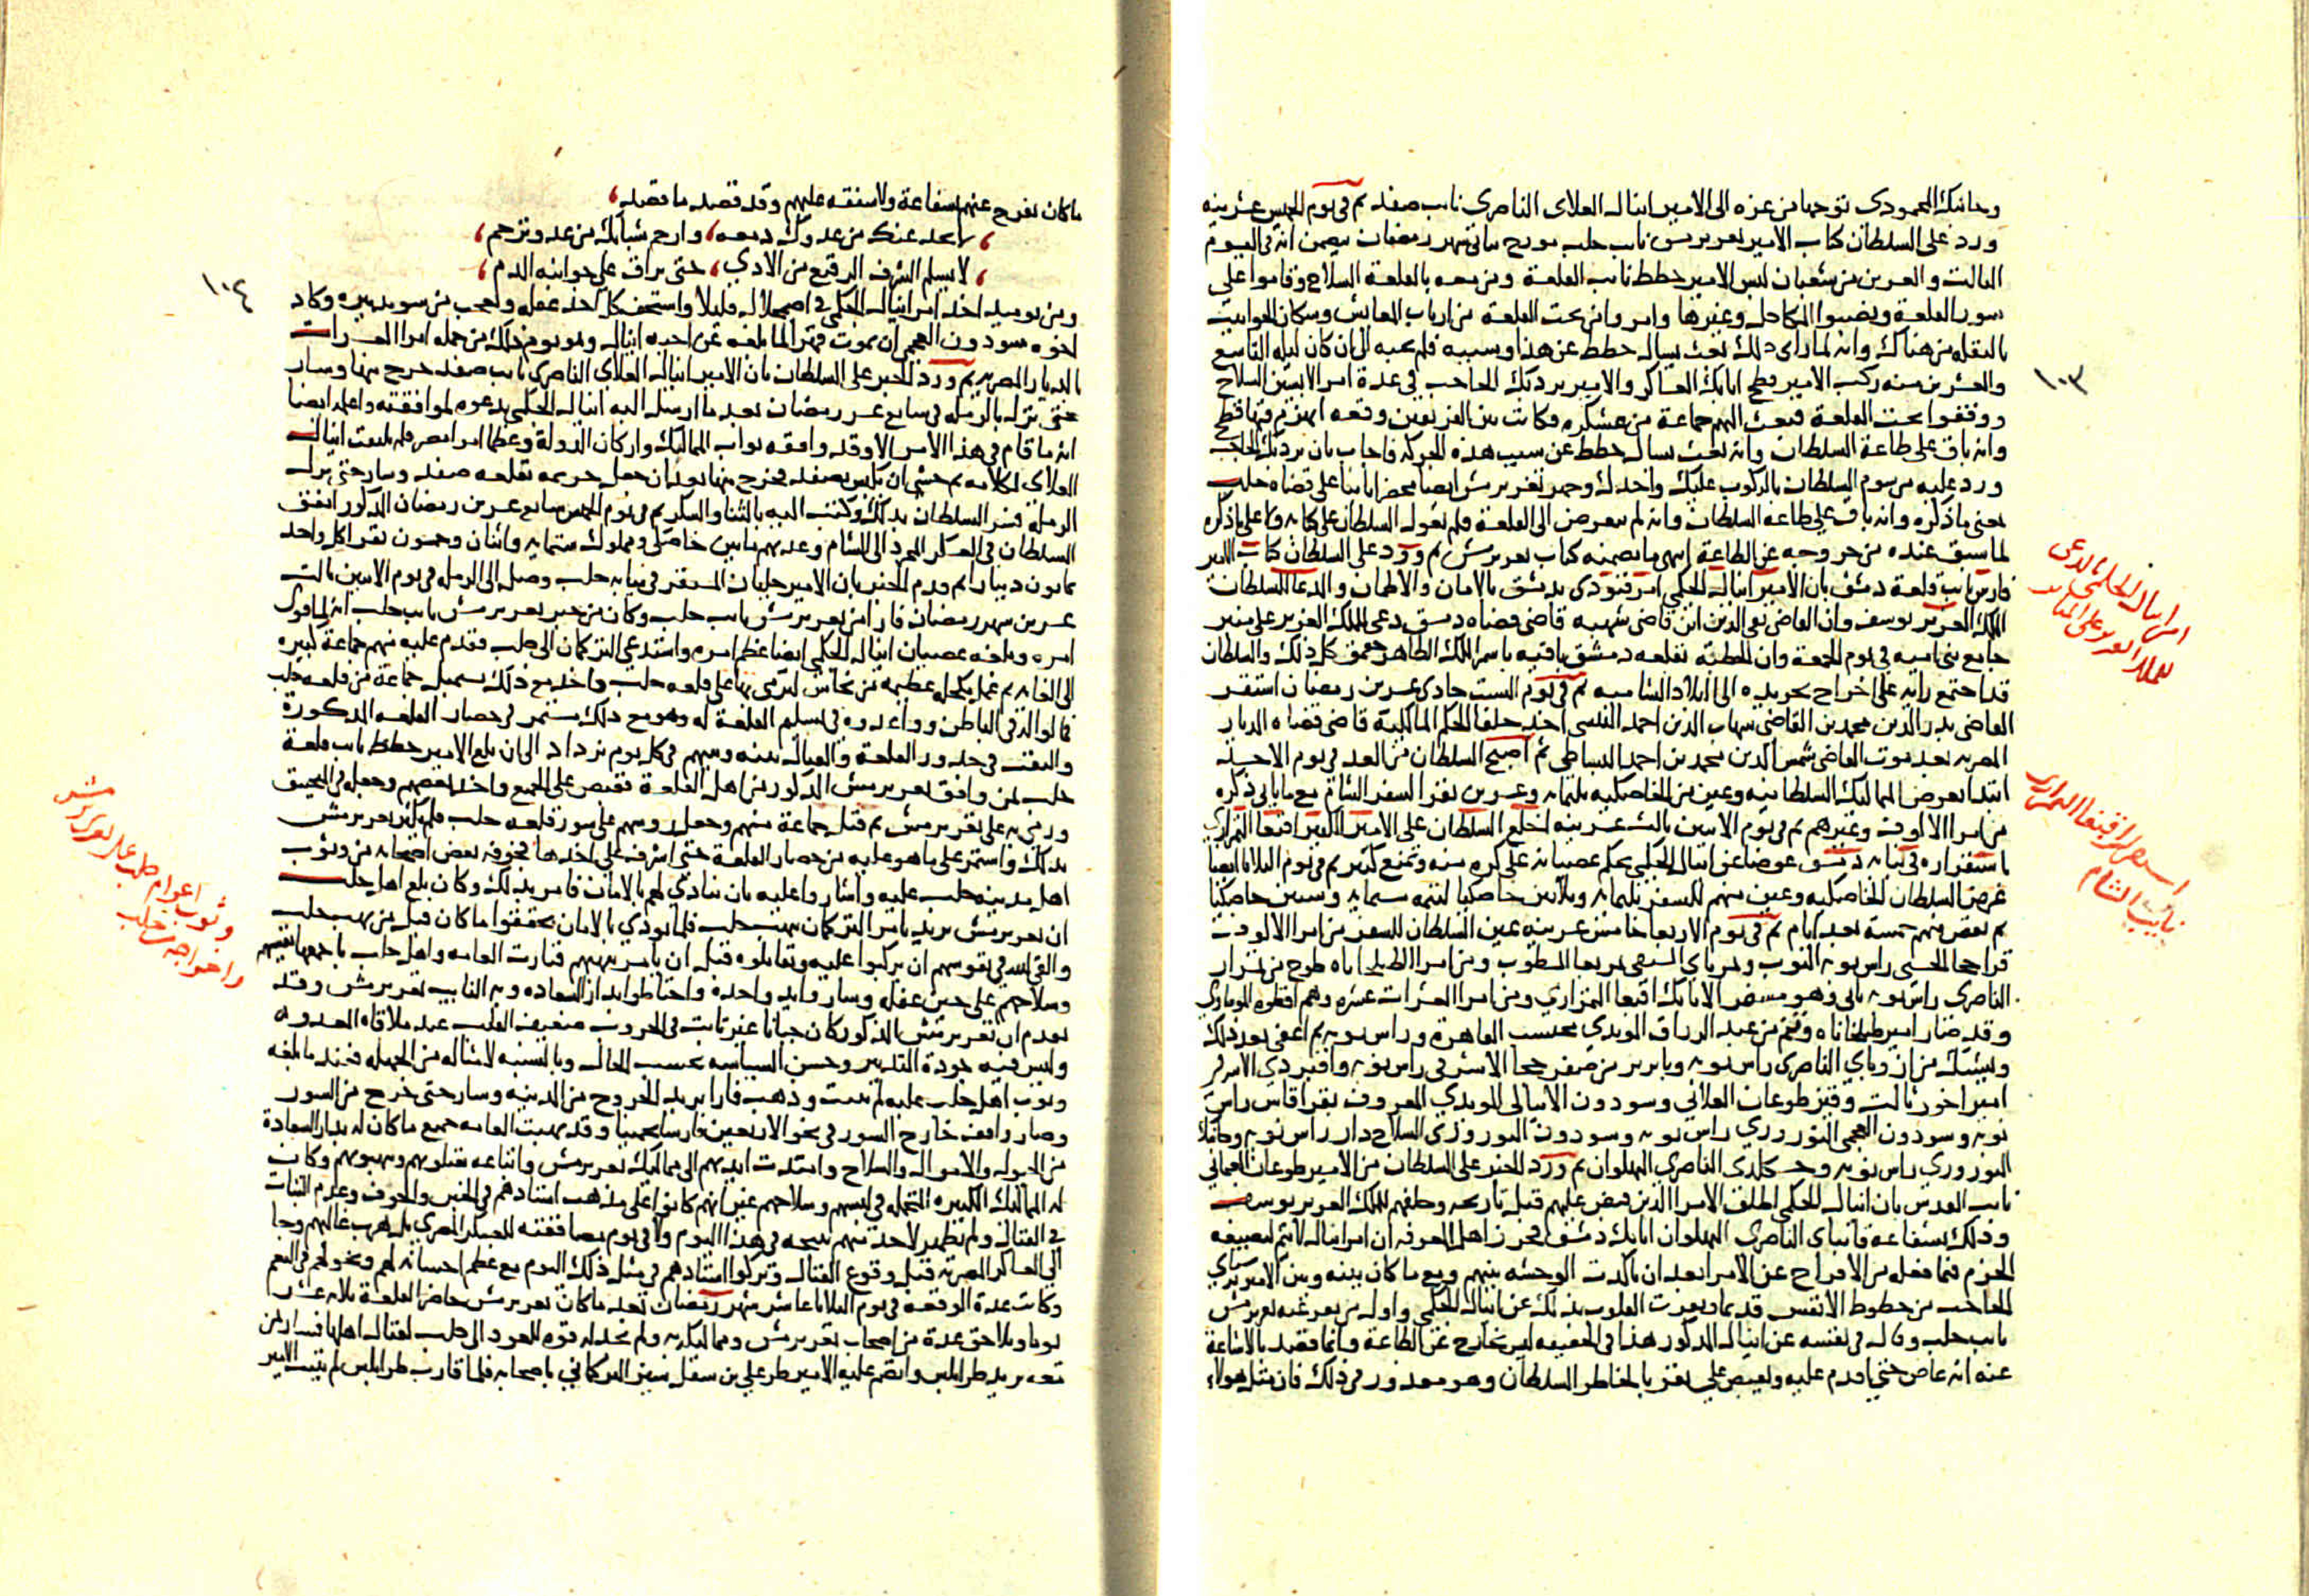 وجانبك المحمودي توجها من غزه الى الامير اينال العلاى الناصرى نايب صفد ثم في يوم الخميس عشرينه
ورد على السلطان كتاب الامير تغرى برمش نايب حلب مورخ بثانى شهر رمضان يتضمن انه فى اليوم
الثالث والعشرين من شعبان لبس الامير حطط نايب القلعة ومن معه بالقلعة السلاح وقاموا على
سور القلعة ونصبوا المكاحل وغيرها وامروا من تحت القلعة من ارباب المعائش وسكان الحوانيت
بالنقله من هناك وانه لما راى ذلك بعث يسال حطط عن هذا وسببه فلم يجبه الى ان كان ليلة التاسع
والعشرين منه ركب الامير قطج اتابك العساكر والامير بردبك الحاجب في عدة امرا لابسين السلاح
ووقفوا تحت القلعة فبعث اليهم جماعة من عسكره فكانت بين الفريقين وقعه انهزم فيها قطج
وانه باق على طاعة السلطان وانه بعث يسال حطط عن سبب هذه الحركه فاجاب بان بردبك الحاجب
ورد عليه مرسوم السلطان بالركوب عليك واخذك وجهز تغرى برمش ايضا محضرا ثابتا على قضاه حلب
بمعنى ما ذكره وانه باق على طاعة السلطان وانه لم يتعرض الى القلعة فلم يعول السلطان على كتابه ولا على ما ذكره
لما سبق عنده من خروجه عن الطاعة انتهى ما تضمنه كتاب تغرى برمش ثم ورد على السلطان كتاب الامير
فارس نايب قلعة دمشق بان الامير اينال الجكمى امر فنودى بدمشق بالامان والاطمان والدعا للسلطان
الملك العزيز يوسف وان القاضى تقى الدين ابن قاضى شهبه قاضى قضاه دمشق دعى للملك العزيز على منبر
جامع بنى اميه فى يوم الجمعة وان الخطبة بقلعه دمشق باقيه باسم الملك الظاهر جقمق كل ذلك والسلطان
قد اجتمع رايه على اخراج تجريده الى البلاد الشاميه ثم في يوم السبت حادى عشرين رمضان استقر
القاضى بدر الدين محمد بن القاضى شهاب الدين احمد التنسى احد خلفا الحكم المالكية قاضى قضاه الديار
المصريه بعد موت القاضى شمس الدين محمد بن احمد البساطى ثم اصبح السلطان من الغد فى يوم الاحد
ابتدا بعرض المماليك السلطانيه وعين من الخاصكيه ثلثمايه وعشرين نفرا لسفر الشام مع ما ياتى ذكره
من امرا الالوف وغيرهم ثم في يوم الاثنين ثالث عشرينه اخلع السلطان على الامير الكبير اقبغا التمرازى
باستقراره فى نيابة دمشق عوضا عن اينال الجكمى بحكم عصيانه على كره منه وتمنع كثير ثم في يوم الثلاثا ايضا
عرض السلطان الخاصكيه وعين منهم للسفر ثلثمايه وثلاثين خاصكيا لتتمه ستمايه وستين خاصكيا
ثم نقص منهم خمسة بعد ايام ثم في يوم الاربعا خامس عشرينه عين السلطان للسفر من امرا الالوف
قراجا الحسنى راس نوبه النوب وتمرباى ومن امرا الطبلخاناه طوخ من تمراز
الناصرى راس نوبه ثانى وهو مسفر الاتابك اقبغا التمرازي ومن امرا العشرات عشره وهم اقطوه الموساوى
وقد صار امير طبلخاناه وتنم من عبد الرزاق المويدي محتسب القاهرة وراس نوبه ثم اعفى بعد ذلك
ويشبك من ازوباي الناصرى راس نوبه وبايزير من صفر خجا الاشرفى راس نوبه واقبردي الاشرفى
امير اخور ثالث وقيز طوغان العلائى وسودون الاينالى المويدي المعروف بقراقاس راس
نوبه وسودون العجمى النوروزي راس نوبه وسودون النوروزى السلاح دار راس نوبه وجانبك
النوروزي راس نوبه وخشكلدى الناصري البهلوان ثم ورد الخبر على السلطان من الامير طوغان العثمانى
نايب القدس بان اينال الجكمى اطلق الامرا الذين قبض عليهم قبل تاريخه وحلفهم للملك العزيز يوسف
وذلك بشفاعة قانباى الناصري البهلوان اتابك دمشق فحزر اهل المعرفه ان امر اينال لا يتم لتضييعه
الحزم فيما فعله من الافراج عن الامرا بعد ان تاكدت الوحشه بينهم ومع ما كان بينه وبين الامير برسباي
الحاجب من حظوظ الانفس قديما ونفرت القلوب بذلك عن اينال الجكمى واول من نفر عنه تغرى برمش
نايب حلب وقال في نفسه عن اينال المذكور هذا فى الحقيقه ليس بخارج عن الطاعة وانما قصد بالاشاعة
عنه انه عاص حتى اقدم عليه ويقبض علي تقربا لخاطر السلطان وهو معذور فى ذلك فان مثل هولاء
١٠٣
امر اينال الجكمى بالدعى
للملك العزيز على المنابر
استقرار اقبغا التمرازى
نائب الشام
ما كان يفرج عنهم بشفاعة ولا شفقه عليهم وقد قصد ما قصد
لا يخدعنك من عدوك دمعه وارحم شبابك من عدو ترحم
لا يسلم الشرف الرفيع من الاذي حتى يراق على جوانبه الدم
ومن يوميذ اخذ امر اينال الجكمى فى اضمحلال قليلا واستخف كل احد عقله وتعجب من سو تدبيره وكاد
اخوه سودون العجمى ان يموت قهرا لما بلغه عن اخيه اينال وهو يوم ذلك من جمله امرا العشرات
بالديار المصريه ثم ورد الخبر على السلطان بان الامير اينال العلاى الناصرى نايب صفد خرج منها وسار
حتى نزل بالرمله فى سابع عشر رمضان بعد ما ارسل اليه اينال الجكمى يدعوه لموافقته واعلمه ايضا
انه ما قام في هذا الامر الا وقد وافقه نواب المماليك واركان الدولة وعظما امرا مصر فلم يلتفت اينال
العلاى لكلامه ثم خشى ان يكبس بصفد فخرج منها بعد ان جعل حريمه بقلعه صفد وسار حتى نزل
الرمله فسر السلطان بذلك وكتب اليه بالثنا والشكر ثم في يوم الخميس سابع عشرين رمضان المذكور انفق
السلطان فى العسكر المجرد الى الشام وعدتهم ما بين خاصكى ومملوك ستمايه واثنان وخمسون نفرا كل واحد
ثمانون دينارا ثم قدم الخبر بان الامير جلبان المستقر فى نيابه حلب وصل الى الرمله فى يوم الاثنين ثالث
عشرين شهر رمضان فارا من تغرى برمش نايب حلب وكان من خبر تغرى برمش نايب حلب انه لما قوى
امره وبلغه عصيان اينال الجكمى ايضا عظم امره واستدعي التركمان الى حلب فقدم عليه منهم جماعة كبيره
الى الغايه ثم عمل مكحله عظيمه من نحاس ليرمى بها على قلعه حلب واخذ مع ذلك يستميل جماعة من قلعه حلب
فمالوا اليه فى الباطن وواعدوه فى تسليم القلعة له وهو مع ذلك مستمر في حصار القلعه المذكورة
والنقب فى جدور القلعة والقتال بينه وبينهم فى كل يوم يزداد الى ان بلغ الامير حطط نايب قلعة
حلب لمن وافق تغرى برمش المذكور من اهل القلعة فقبض على الجميع واخذ بعضهم وجعله فى المنجنيق
ورمى به على تغرى برمش ثم قتل جماعة منهم وجعل روسهم على سور قلعه حلب فلم يكترث تغرى برمش
بذلك واستمر على ما هو عليه من حصار القلعة حتى اشرف على اخذها فخوفه بعض اصحابه من وثوب
اهل مدينه حلب عليه واشاروا عليه بان ينادي لهم بالامان فامر بذلك وكان بلغ اهل حلب
ان تغرى برمش يريد يامر التركمان بنهب حلب فلما نودي بالامان تحققوا ما كان قيل من نهب حلب
والقى الله في نفوسهم ان يركبوا عليه ويقاتلوه قبل ان يامر بنهبهم فثارت العامه واهل حلب باجمعها بقسيهم
وسلاحهم على حين غفله وساروا يد واحدة واحتاطوا بدار السعاده وبها النايب تغرى برمش وقد
تقدم ان تغرى برمش المذكور كان جبانا غير ثابت فى الحروب ضعيف القلب عند ملاقاه العدو
وليس فيه جودة التدبير وحسن السياسه بحسب الحال وبالنسبه لامثاله من الجهله فعند ما بلغه
وثوب اهل حلب عليه لم يثبت وذهب فارا يريد الخروج من المدينه وسار حتى خرج من السور
وصار واقف خارج السور فى نحو الاربعين فارسا تخمينا وقد نهبت العامه جميع ما كان له بدار السعادة
من الخيول والاموال والسلاح وامتدت ايديهم الى مماليك تغرى برمش واتباعه يقتلونهم وينهبونهم وكانت
له المماليك الكثيره المتجمله فى لبسهم وسلاحهم غير انهم كانوا على مذهب استادهم فى الجبن والخوف وعدم الثبات
فى القتال ولم يظهر لاحد منهم نتيجه فى هذا اليوم ولا في يوم مصاففته للعسكر المصرى بل هرب غالبهم وجا
الى العساكر المصريه قبل وقوع القتال وتركوا استادهم فى مثل ذلك اليوم مع عظم احسانه لهم وتخولهم فى النعم
وكانت عدة الوقعه فى يوم الثلاثا عاشر شهر رمضان بعد ما كان تغرى برمش حاصر القلعة ثلاثه عشر
يوما وتلاحق عدة من اصحاب تغرى برمش ومماليكه به ولم يجد له قوه للعود الى حلب لقتال اهلها فسار بمن
معه يريد طرابلس وانضم عليه الامير طر علي بن سقل سيز التركماني باصحابه فلما قارب طرابلس لم يثبت الامير
١٠٤
وثوب اعوام حلب على تغرى برمش
واخراجه من حلب